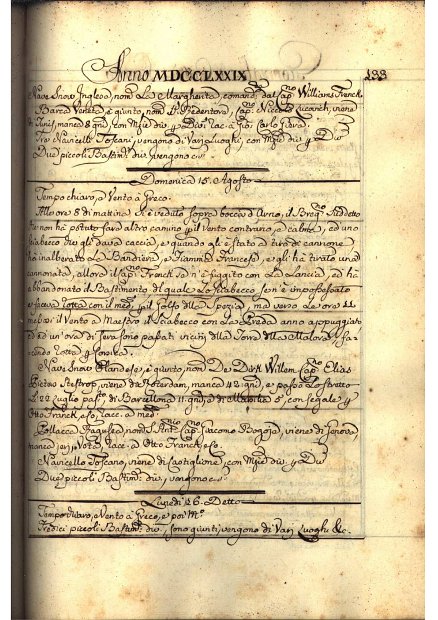 Anno MDCCLXXIX 133
Nave Snow Inglese, nom. La Margherita, comand. dal Cap.no Williams Franck,
Barca Veneta, è giunto, nom. Il Redentore, Cap.no Niccolò viene
di Tunis, manca 8 gni, con Mzie div. p. Div. lac. a Carlo
Tre Navicelli Toscani, vengono di Varj Luoghi, con Mzie div. p. Div.
Due piccoli Bastim.ti div. vengono
Domenica 15. Agosto
Tempo chiaro, e Vento a Greco.
All'ore 8 di mattina s'è veduto sopra bocca d'Arno, il Sudetto
che non ha potuto fare altro camino p. il Vento contrario, e calma, ed uno
Sciabecco che gli dava caccia, e quando gli è stato a tiro di cannone
ha inalberato La Bandiera, e Fiamma Francese, e gli ha tirato una
cannonata, allora il Cap.no Franck se n'è fuggito con La Lancia, ed ha
abbandonato il Bastimento del quale Lo Sciabecco se n'è impossessato
e faceva rotta con il med.mo p. il Golfo della Spezia, ma verso Le ore 11
il Vento a Maestro il Sciabecco con La Preda anno appuggiato
ed ad un'ora di sera sono passati vicini alla Torre della Maloria, fa-
cendo rotta p.
Nave Snow Olandese, è giunto, nom. De Dirk Willem Cap.no Elias
Pietro viene da Roterdam, manca 42 gni, e passò Lo Stretto
L 22 Luglio pass. di Barcellona 11 gni, e di 5, con Segale p.
Otto Franck e lac. a med.
Pollacca Ragusea nom. S. Ant. Cap.no Giacomo viene di Genova,
manca p. Voto, lac. a Otto Franck e
Navicello Toscano, viene di Castiglione, con Mzie div. p. Div.
Due piccoli Bastim.ti div. vengono
Lunedì 16. Detto
Tempo chiaro, e Vento a Greco, e poi M.
Tredici piccoli Bastim.ti div. sono giunti, vengono di Varj Luoghi &c.